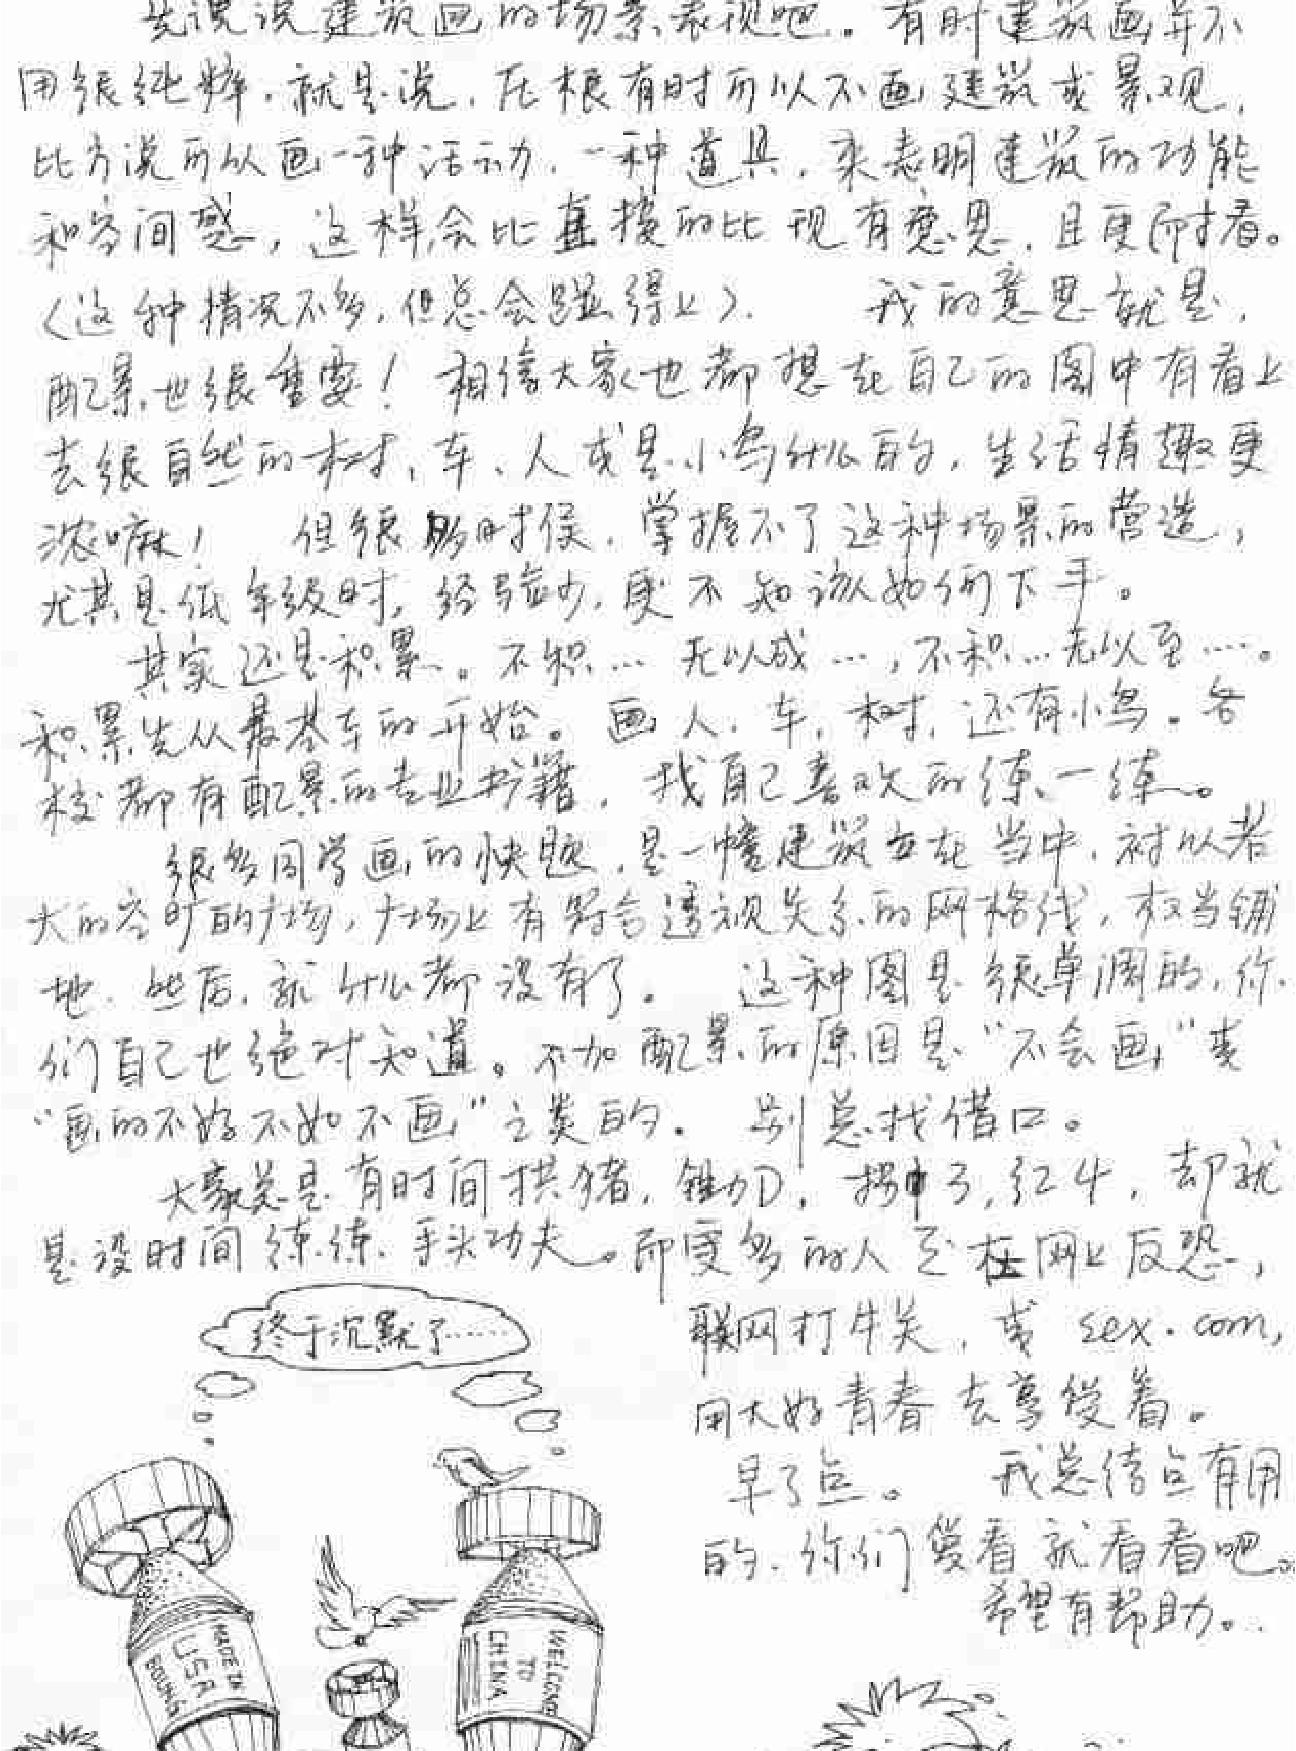 先说说建筑画的场景表现吧。有时建筑画并不
用很纯粹。就是说,在根有时可以不画建筑或景观,
比方说可以画一种活动,一种道具,来表明建筑的功能
和空间感,这样,会比直接的比现有意思,且更耐看。
〈这种情况不多,但总会碰得上〉. 我的意思就是,
配景也很重要! 相信大家也都想在自己的图中有看上
去很自然的树、车、人或是小鸟什么的,生活情趣更
浓嘛! 但很多时候,掌握不了这种场景的营造,
尤其是低年级时,经验少,更不知该如何下手。
其实还是积累。不积…无以成…,不积…无以至…。
积累先从最基本的开始。画人,车,树,还有小鸟。各
校都有配景的专业书籍,找自己喜欢的练一练。
很多同学画的快题,是一幢建筑立在当中,衬以若
大的空旷的广场,广场上有符合透视关系的网格线,权当铺
地.然后,就什么都没有了。 这种图是很单调的,你
们自己也绝对知道。不加配景的原因是“不会画”或
“画的不好不如不画”之类的。 别总找借口。
大家总是有时间拱猪,锄D,拐中子,红4,却就
是没时间练练手头功夫。而更多的人是在网上反恐,
联网打牛关,或 sex.com,
用大好青春去享受着。
早了点。 我总结点有用
的.你们爱看就看看吧。
希望有帮助。
终于沉默了……
MADE IN
USA
BOEING
WELCOME
TO
CHINA